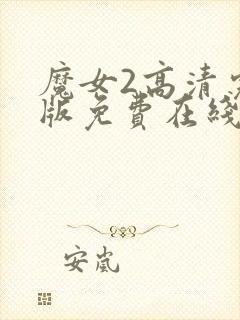 魔女2高清
版免费在线
安岚